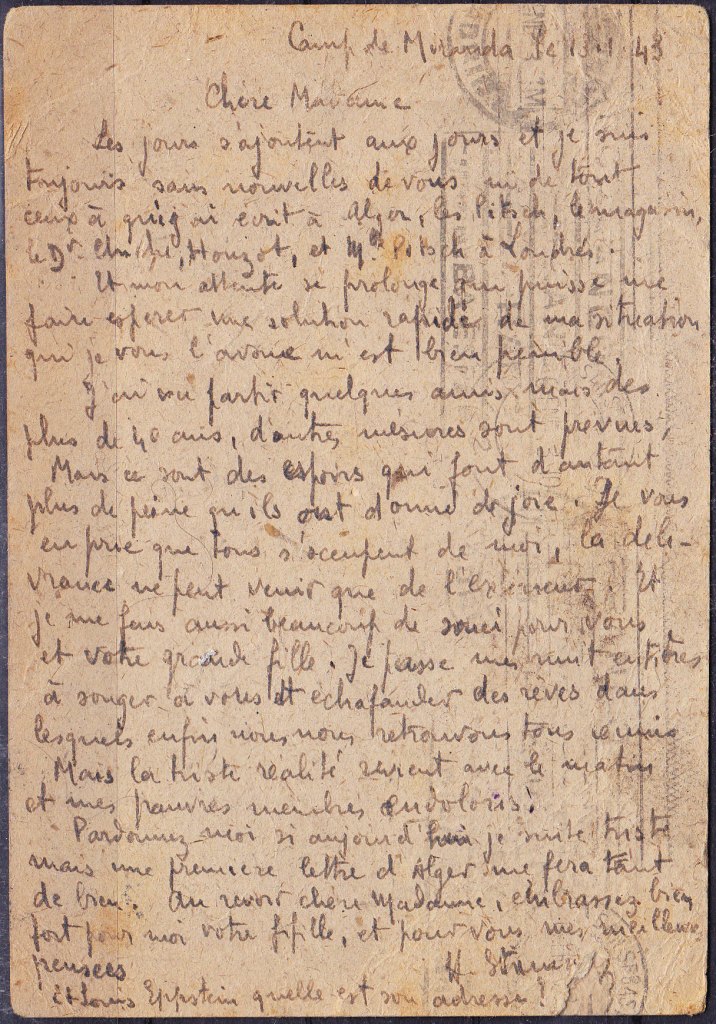 Camp de Miranda le 13-1-43
Chère Madame
Les jours s'ajoutent aux jours et je suis
toujours sans nouvelles de vous ni de tout
ceux à qui j'ai écrit à Alger, les Pitsch, le magasin,
le Dr. Houzot, et Mlle Pitsch à Londres.
Et mon attente se prolonge qui puisse me
faire esperer une solution rapide de ma situation
qui je vous l'avoue m'est bien penible.
J'ai vu partir quelques amis mais des
plus de 40 ans, d'autres mesures sont prevues,
Mais ce sont des espoirs qui font d'autant
plus de peine qu'ils ont donné de joie. Je vous
en prie que tous s'occupent de moi, la deli-
vrance ne peut venir que de l'exterieur. Et
je me fais aussi beaucoup de souci pour vous
et votre grande fille. Je passe mes nuit entières
à songer à vous et echafauder des rêves dans
lesquels enfin nous nous retrouvons tous réunis
Mais la triste réalité revient avec le matin
et mes pauvres membres endoloris!
Pardonnez-moi si aujourd'hui je suis triste
mais une premiere lettre d'Alger me fera tant
de bien. Au revoir chère Madame, embrassez bien
fort pour moi votre fifille, et pour vous mes meilleures
pensees H.
Et Louis Eppstein quelle est son adresse?